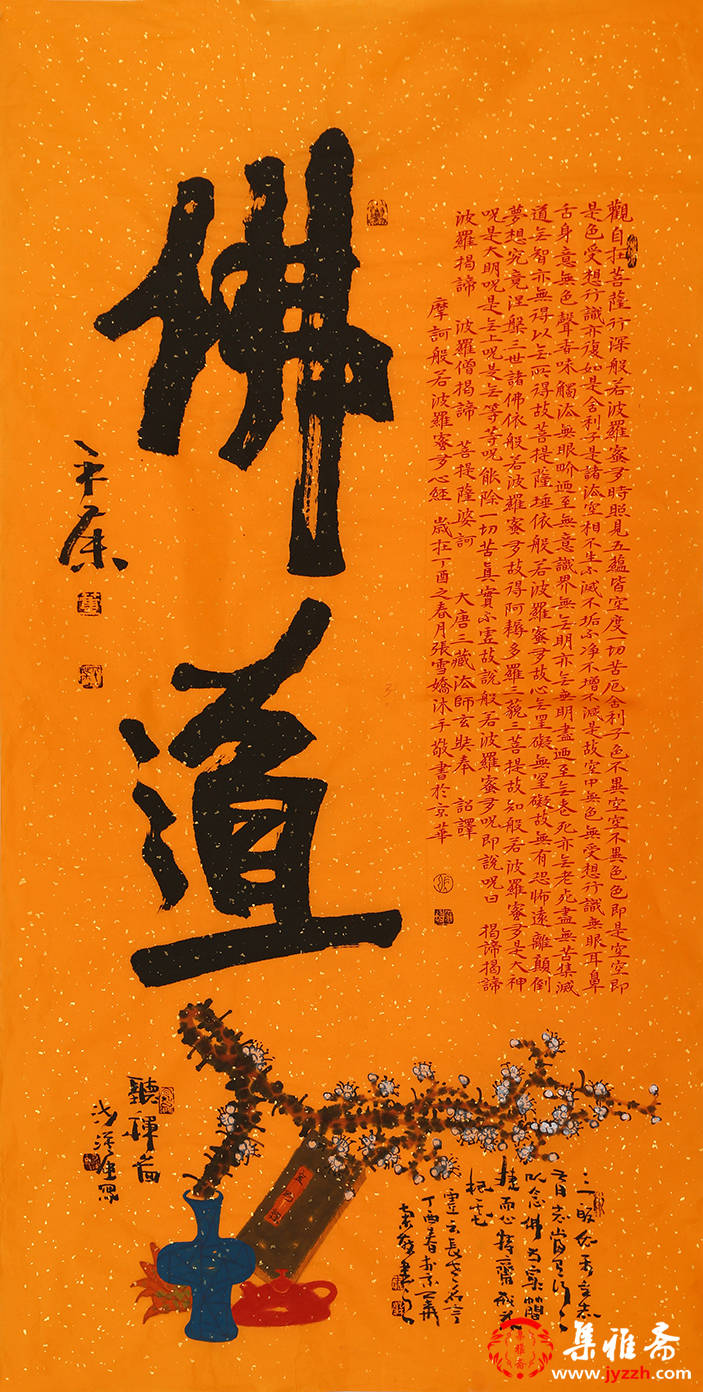 觀自在菩薩行深般若波羅蜜多時照見五蘊皆空度一切苦厄舍利子色不異空空不異色色即是空空即
是色受想行識亦復如是舍利子是諸法空相不生不滅不垢不净不增不減是故空中無色無受想行識無眼耳鼻
舌身意無色聲香味觸法無眼界迺至無意識界無无明亦无無明盡迺至无老死亦无老死盡無苦集滅
道无智亦無得以无所得故菩提薩埵依般若波羅蜜多故心无罣礙無罣礙故無有恐怖遠離顛倒
夢想究竟涅槃三世諸佛依般若波羅蜜多故得阿耨多羅三藐三菩提故知般若波羅蜜多是大神
呪是大明呪是无上呪是无等等呪能除一切苦真實不虛故說般若波羅蜜多呪即說呪曰 揭諦揭諦
波羅揭諦 波羅僧揭諦 菩提薩婆訶 大唐三藏法師玄奘奉 詔譯
摩訶般若波羅蜜多心經 歲在丁酉之春月張雪嬌沐手敬書於京華
佛道
聽禪圖
丁酉春於京華
集雅斋
www.jyzzh.com